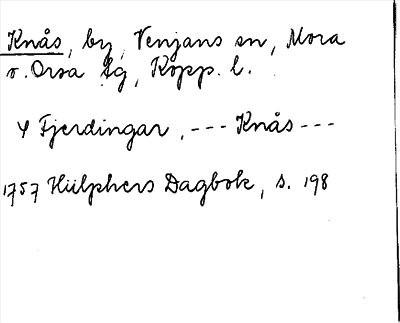 Knås, by, Venjans sn, Mora
o. Orsa tg, Kopp. l.
4 Fjerdingar, --- Knås ---
1757 Hülphers Dagbok, s. 198